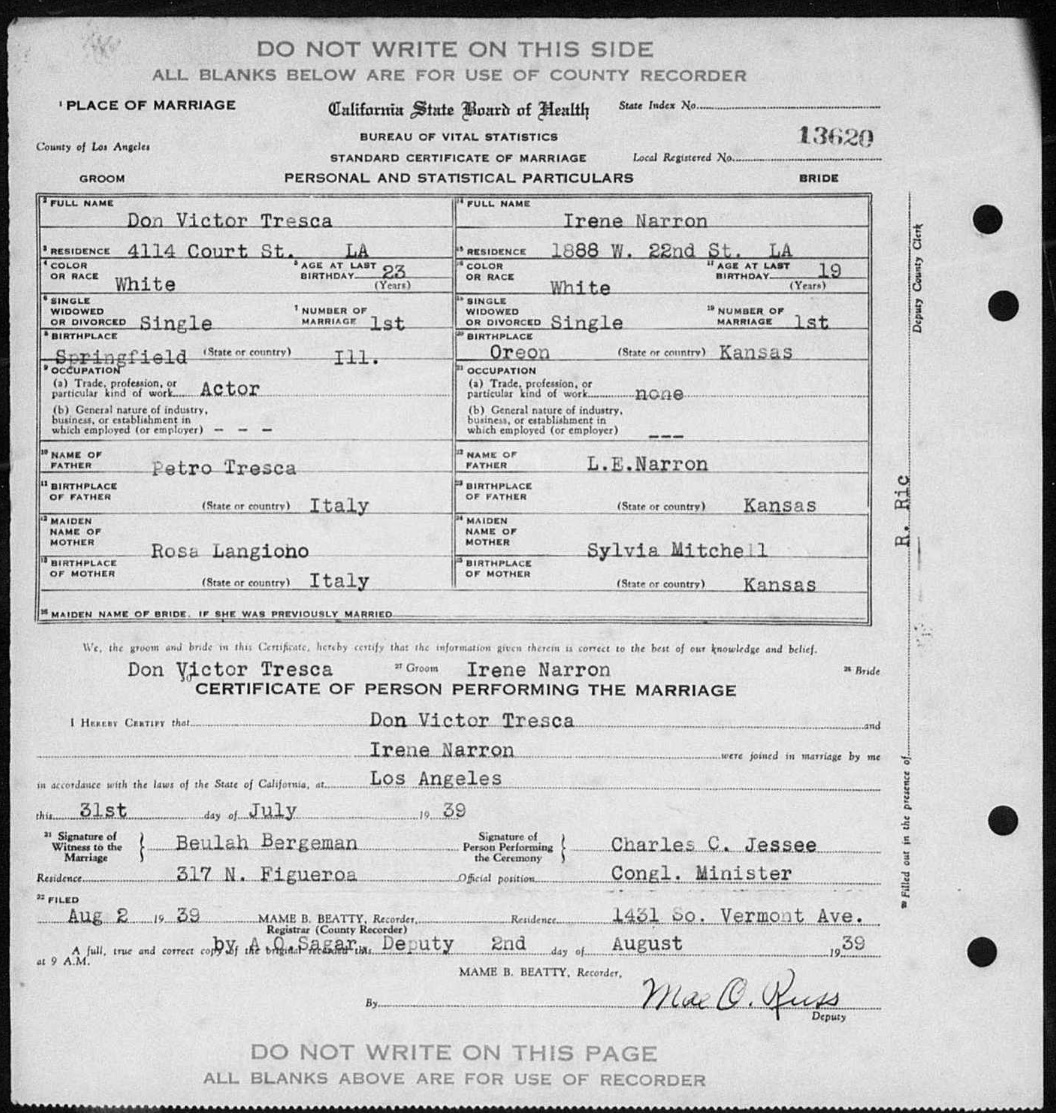 DO NOT WRITE ON THIS SIDE
ALL BLANKS BELOW ARE FOR USE OF COUNTY RECORDER
1 PLACE OF MARRIAGE
California State Board of Health
State Index No.
BUREAU OF VITAL STATISTICS
13620
County of Los Angeles
STANDARD CERTIFICATE OF MARRIAGE
Local Registered No.
GROOM PERSONAL AND STATISTICAL PARTICULARS BRIDE
2 FULL NAME Don Victor Tresca
14 FULL NAME Irene Narron
3 RESIDENCE 4114 Court St. LA
15 RESIDENCE 1888 W. 22nd St. LA
4 COLOR OR RACE White
5 AGE AT LAST BIRTHDAY 23 (Years)
16 COLOR OR RACE White
17 AGE AT LAST BIRTHDAY 19 (Years)
6 SINGLE WIDOWED OR DIVORCED Single
7 NUMBER OF MARRIAGE 1st
18 SINGLE WIDOWED OR DIVORCED Single
19 NUMBER OF MARRIAGE 1st
8 BIRTHPLACE Springfield (State or country) Ill.
20 BIRTHPLACE Oreon (State or country) Kansas
9 OCCUPATION
(a) Trade, profession, or
particular kind of work Actor
(b) General nature of industry,
business, or establishment in
which employed (or employer) - - -
21 OCCUPATION
(a) Trade, profession, or
particular kind of work none
(b) General nature of industry,
business, or establishment in
which employed (or employer) ---
10 NAME OF FATHER Petro Tresca
22 NAME OF FATHER L.E.Narron
11 BIRTHPLACE OF FATHER (State or country) Italy
23 BIRTHPLACE OF FATHER (State or country) Kansas
12 MAIDEN NAME OF MOTHER Rosa Langiono
24 MAIDEN NAME OF MOTHER Sylvia Mitchell
13 BIRTHPLACE OF MOTHER (State or country) Italy
25 BIRTHPLACE OF MOTHER (State or country) Kansas
26 MAIDEN NAME OF BRIDE, IF SHE WAS PREVIOUSLY MARRIED
We, the groom and bride in this Certificate, hereby certify that the information given therein is correct to the best of our knowledge and belief.
Don Victor Tresca 27 Groom Irene Narron 28 Bride
CERTIFICATE OF PERSON PERFORMING THE MARRIAGE
I HEREBY CERTIFY that Don Victor Tresca and
Irene Narron were joined in marriage by me
in accordance with the laws of the State of California, at Los Angeles
this 31st day of July 19 39
31 Signature of Witness to the Marriage } Beulah Bergeman
Signature of Person Performing the Ceremony } Charles C. Jessee
Residence 317 N. Figueroa Official position Congl. Minister
32 FILED
Aug 2 19 39 MAME B. BEATTY, Recorder, Residence 1431 So. Vermont Ave.
Registrar (County Recorder)
by A O Sagar, Deputy
A full, true and correct copy of the original recorded this 2nd day of August 19 39
at 9 A.M.
MAME B. BEATTY, Recorder,
By Mae O. Russ
Deputy
DO NOT WRITE ON THIS PAGE
ALL BLANKS ABOVE ARE FOR USE OF RECORDER
Filled out in the presence of R. Ric Deputy County Clerk